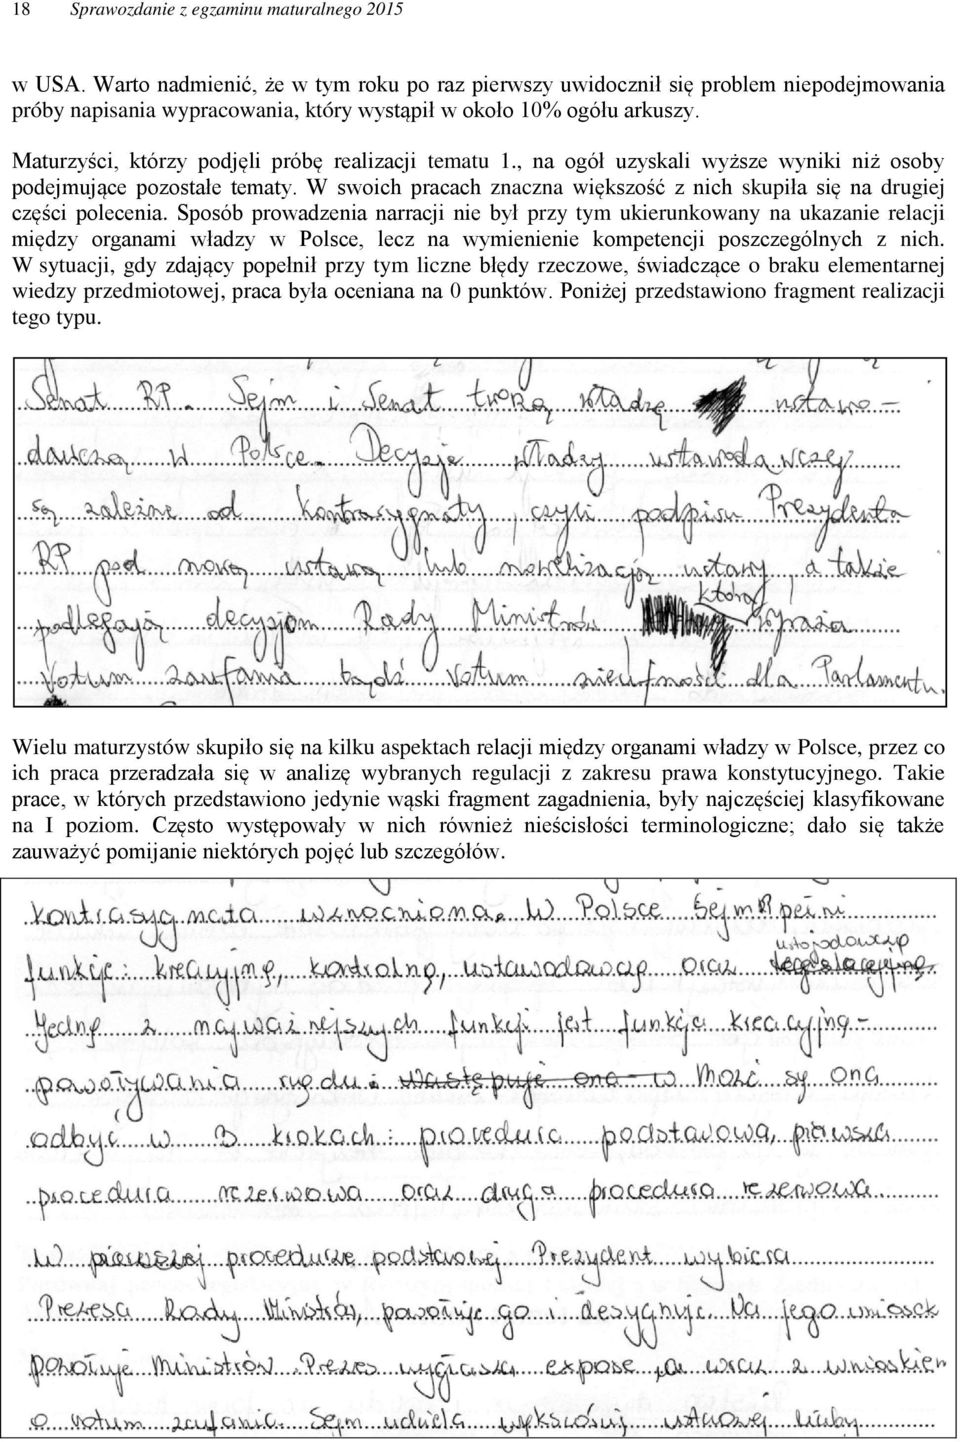 18 Sprawozdanie z egzaminu maturalnego 2015
w USA. Warto nadmienić, że w tym roku po raz pierwszy uwidocznił się problem niepodejmowania
próby napisania wypracowania, który wystąpił w około 10% ogółu arkuszy.
Maturzyści, którzy podjęli próbę realizacji tematu 1., na ogół uzyskali wyższe wyniki niż osoby
podejmujące pozostałe tematy. W swoich pracach znaczna większość z nich skupiła się na drugiej
części polecenia. Sposób prowadzenia narracji nie był przy tym ukierunkowany na ukazanie relacji
między organami władzy w Polsce, lecz na wymienienie kompetencji poszczególnych z nich.
W sytuacji, gdy zdający popełnił przy tym liczne błędy rzeczowe, świadczące o braku elementarnej
wiedzy przedmiotowej, praca była oceniana na 0 punktów. Poniżej przedstawiono fragment realizacji
tego typu.
Senat RP. Sejm i Senat tworzą władzę ustawo-
dawczą w Polsce. Decyzje władzy ustawodawczej
są zależne od kontrasygnaty, czyli podpisu Prezydenta
RP pod nową ustawą lub nowelizacją ustawy, a także
podlegają decyzjom Rady Ministrów która wyraża
Votum zaufania bądź Votum nieufności dla Parlamentu.
Wielu maturzystów skupiło się na kilku aspektach relacji między organami władzy w Polsce, przez co
ich praca przeradzała się w analizę wybranych regulacji z zakresu prawa konstytucyjnego. Takie
prace, w których przedstawiono jedynie wąski fragment zagadnienia, były najczęściej klasyfikowane
na I poziom. Często występowały w nich również nieścisłości terminologiczne; dało się także
zauważyć pomijanie niektórych pojęć lub szczegółów.
kontrasygnata wznocniona. W Polsce Sejm pełni
funkcje: kreacyjną, kontrolną, ustawodawczą oraz legislacyjną.
Jedną z najważniejszych funkcji jest funkcja kreacyjna-
powoływania rządu. występuje ona w Może się ona
odbyć w 3 krokach: procedura podstawowa, pierwsza
procedura rezerwowa oraz druga procedura rezerwowa
W pierwszej procedurze podstawowej Prezydent wybiera
Prezesa Rady Ministrów, powołuje go i desygnuje. Na jego wniosek
powołuje Ministrów. Prezes wygłasza expose wraz z wnioskiem
o votum zaufania. Sejm udziela większością ustawowej liczby